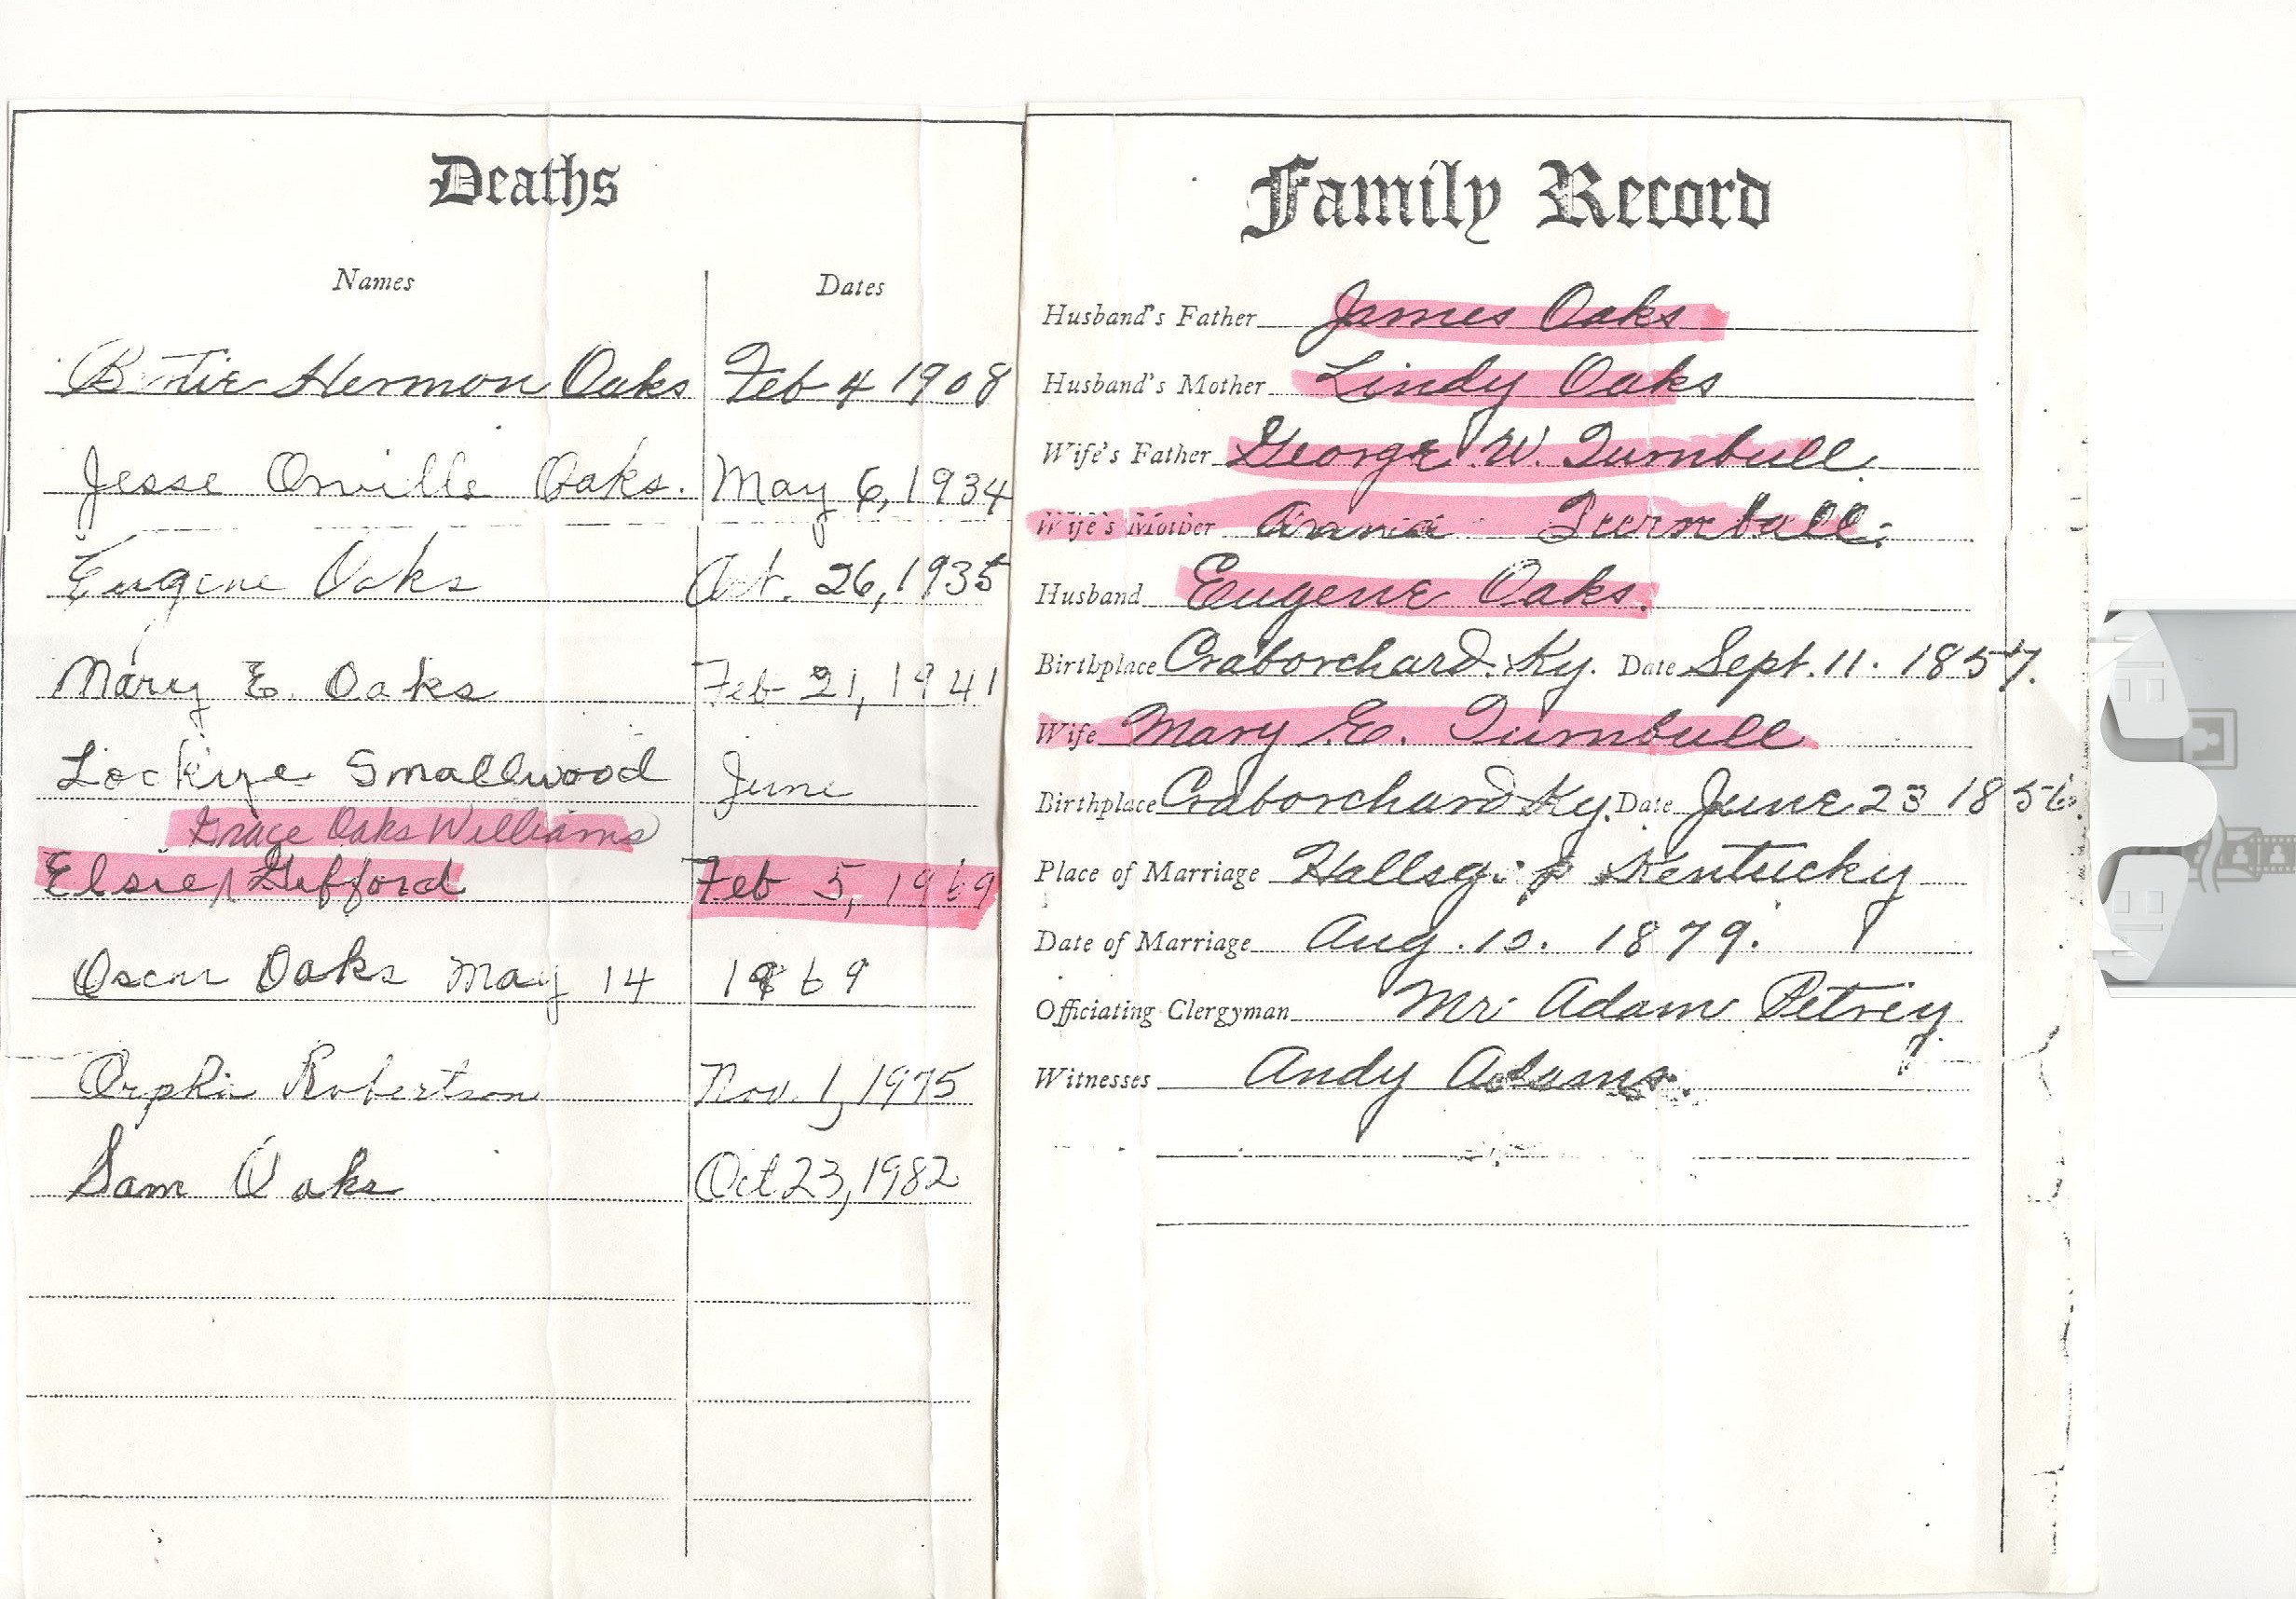 Deaths
Names Dates
Hermon Oaks Feb 4 1908
Jesse Orville Oaks. May 6, 1934
Eugene Oaks Oct. 26, 1935
Mary E. Oaks Feb 21, 1941
Lockye Smallwood June
Grace Oaks Williams
Elsie Gifford Feb 5, 1969
Oscar Oaks May 14 1969
Orpha Robertson Nov. 1, 1975
Sam Oaks Oct 23, 1982
Family Record
Husband's Father James Oaks
Husband's Mother Lindy Oaks
Wife's Father George W. Turnbull.
Wife's Mother Anna Turnbull.
Husband Eugene Oaks.
Birthplace Craborchard. Ky. Date Sept. 11. 1857.
Wife Mary E. Turnbull
Birthplace Craborchard Ky. Date June 23 1856.
Place of Marriage Kentucky
Date of Marriage Aug. 10. 1879.
Officiating Clergyman Mr. Adam Petrey
Witnesses Andy Adams.